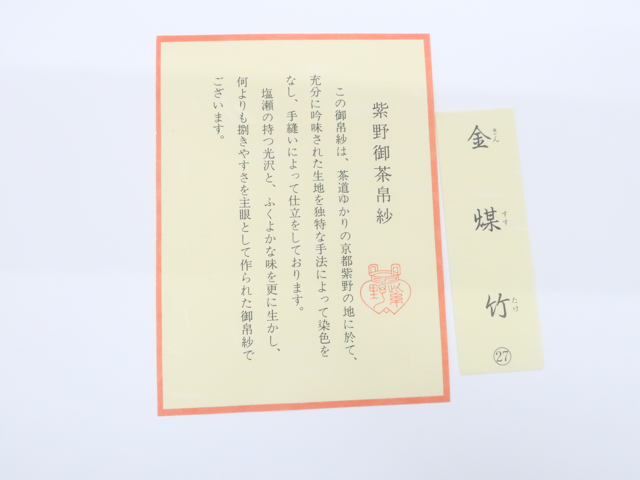 紫野御茶帛紗
この御帛紗は、茶道ゆかりの京都紫野の地に於て、
充分に吟味された生地を独特な手法によって染色を
なし、手縫いによって仕立をしております。
塩瀬の持つ光沢と、ふくよかな味を更に生かし、
何よりも捌きやすさを主眼として作られた御帛紗で
ございます。
金煤竹
きんすすたけ
㉗